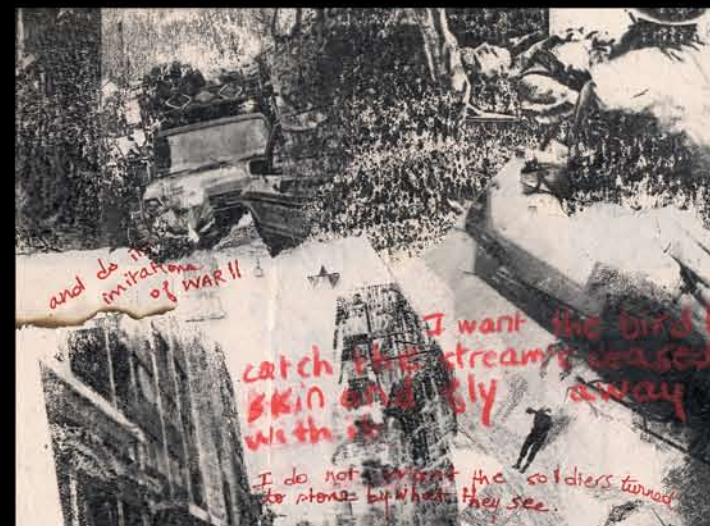 and do
imitations
of WAR II
I want the bird
catch the stream's ceased
skin and fly away
with it
I do not want the soldiers turned
to stone by what they see.